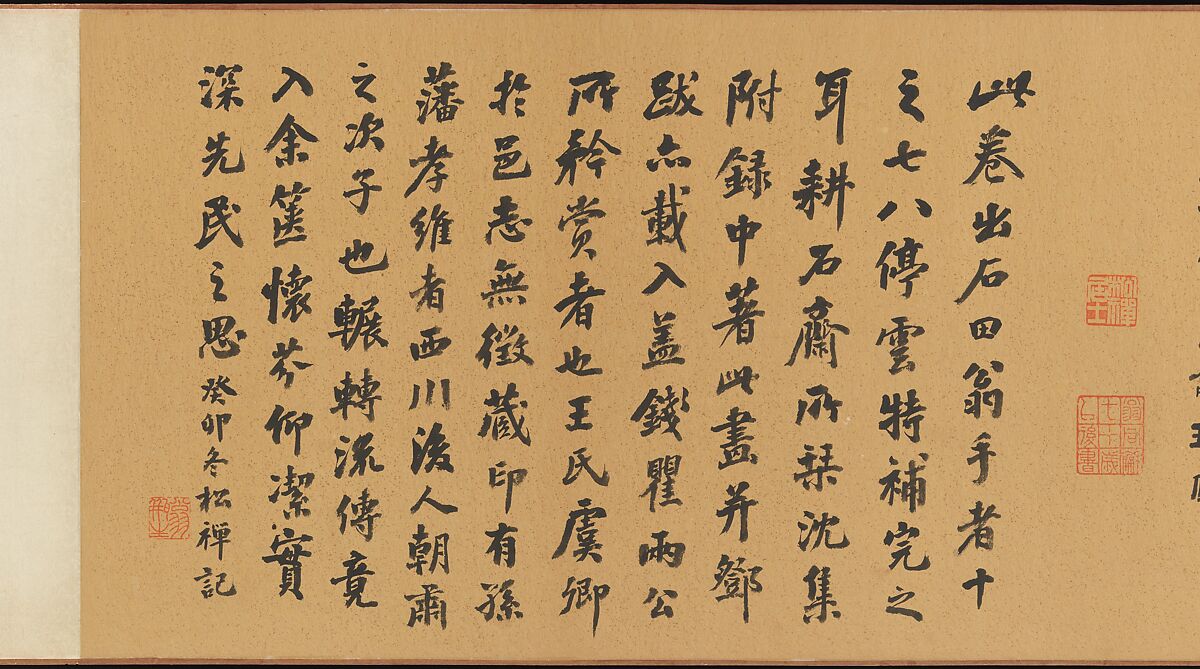 此卷出石田翁手者十
之七八停雲特補完之
耳耕石齋所栞沈集
附録中著此畫并鄧
跋亦載入盖錢瞿兩公
所矜賞者也王氏虞卿
於邑志無徵藏印有孫
藩孝維者西川後人朝肅
之次子也輾轉流傳竟
入余篋懷芬仰潔實
深先民之思癸卯冬松禪記